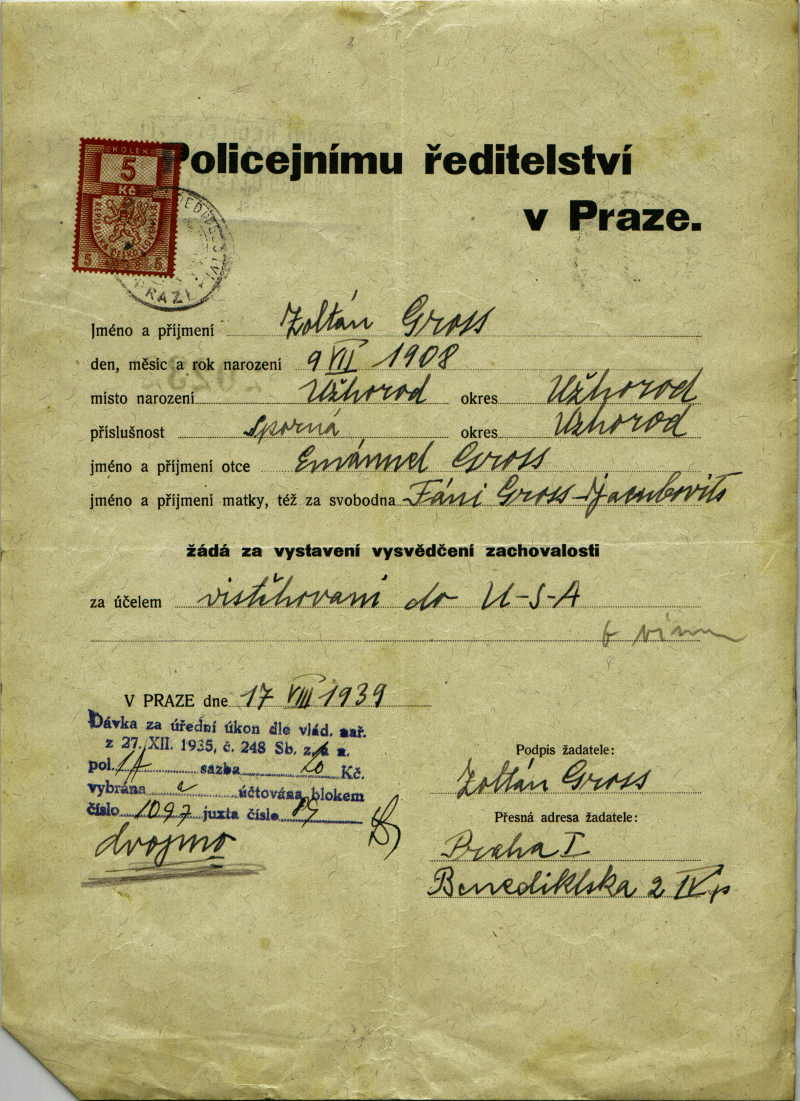 5
Kč
5 5
Policejnímu ředitelství
v Praze.
Jméno a příjmení Zoltán Gross
den, měsíc a rok narození 9 VII 1908
místo narození Užhorod okres Užhorod
příslušnost Sporná okres Užhorod
jméno a příjmení otce Emánuel Gross
jméno a příjmení matky, též za svobodna Fáni Gross
žádá za vystavení vysvědčení zachovalosti
za účelem vistěhovani do U-S-A
V PRAZE dne 17 VIII 1939
Dávka za úřední úkon dle vlád. nař.
z 27. XII. 1935, č. 248 Sb. z. a n.
pol. sazba Kč.
vybrána účtována blokem
číslo 1097 juxta číslo
dvojmo
Podpis žadatele:
Zoltán Gross
Přesná adresa žadatele:
Praha I
Benediktska 2 IV p